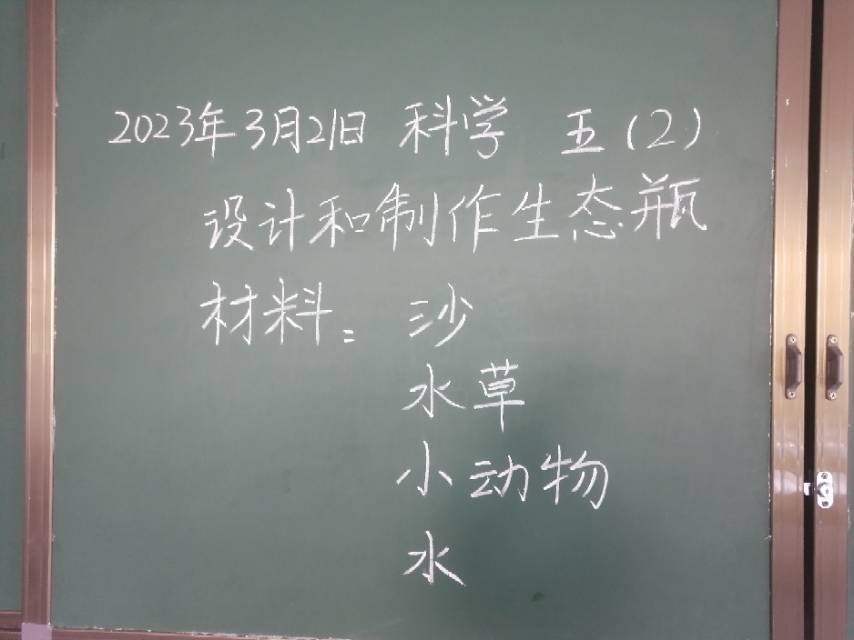 2023年3月21日 科学 五(2)
设计和制作生态瓶
材料：沙
水草
小动物
水